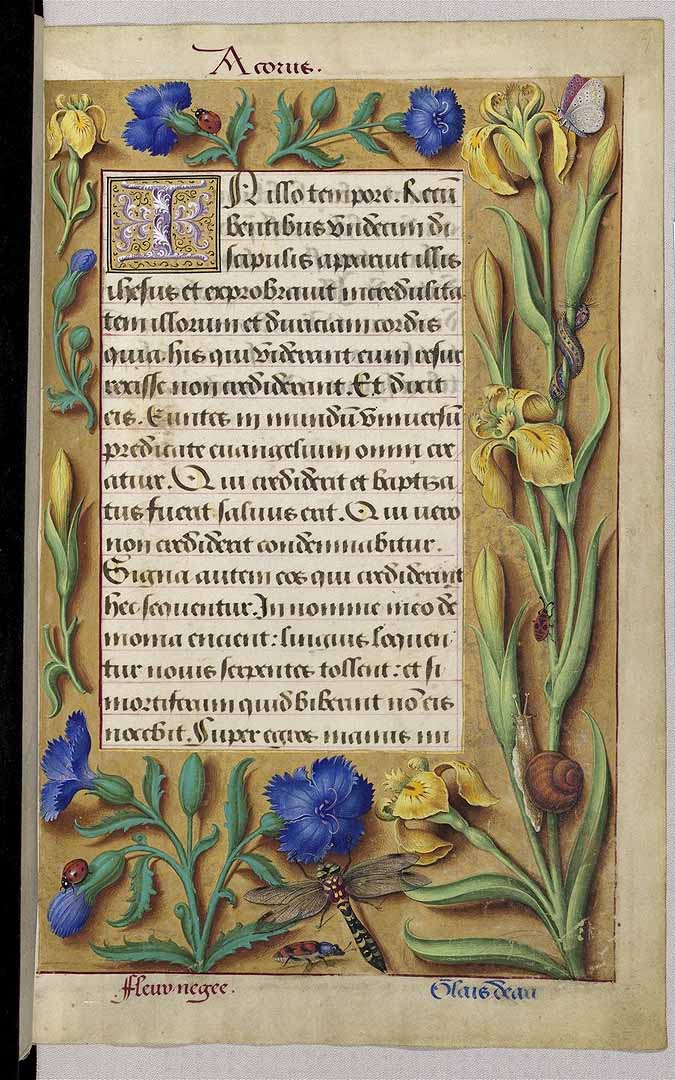 Acorus.
IN illo tempore. Recū
bentibus vndecim di
scipulis apparuit illis
ihesus et exprobrauit incredulita
tem illorum et duriciam cordis
quia his qui viderant eum resur
rexisse non crediderant. Et dixit
eis. Euntes in mundū vniuersū
predicate euangelium omni cre
ature. Qui crediderit et baptiza
tus fuerit saluus erit. Qui vero
non crediderit condemnabitur.
Signa autem eos qui crediderint
hec sequentur. In nomine meo de
monia eiicient: linguis loquen
tur nouis serpentes tollent: et si
mortiferum quid biberint nō eis
nocebit. Super egros manus im
ffleur negee.
Glais deau